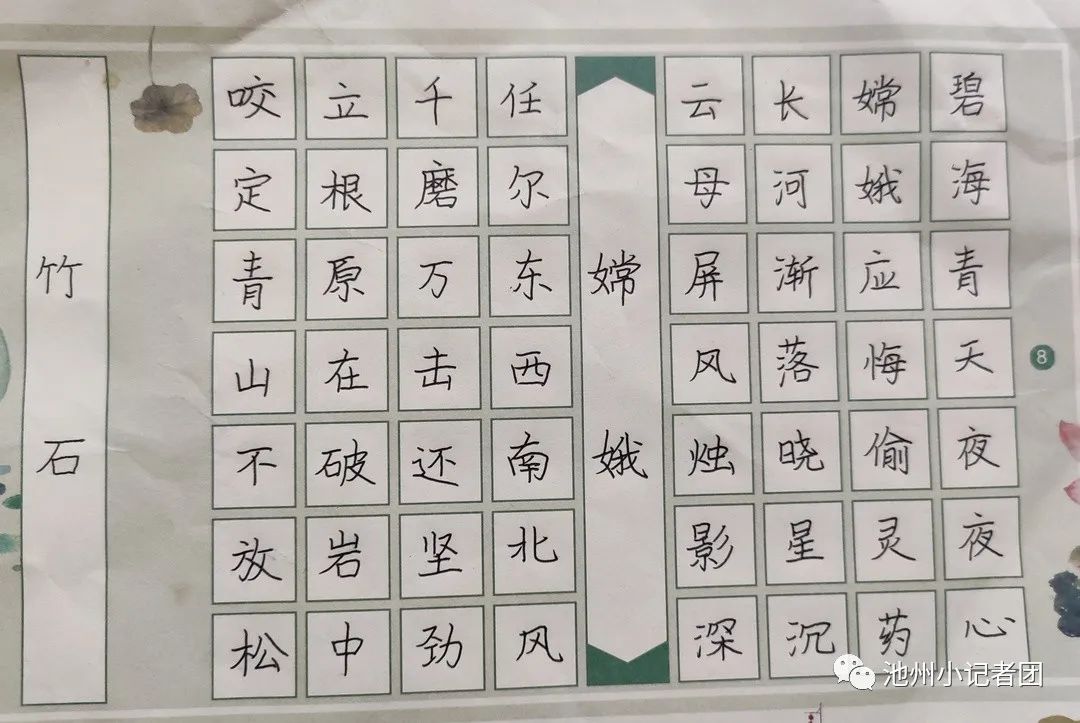 竹石
咬定青山不放松
立根原在破岩中
千磨万击还坚劲
任尔东西南北风
嫦娥
云母屏风烛影深
长河渐落晓星沉
嫦娥应悔偷灵药
碧海青天夜夜心
8
池州小记者团